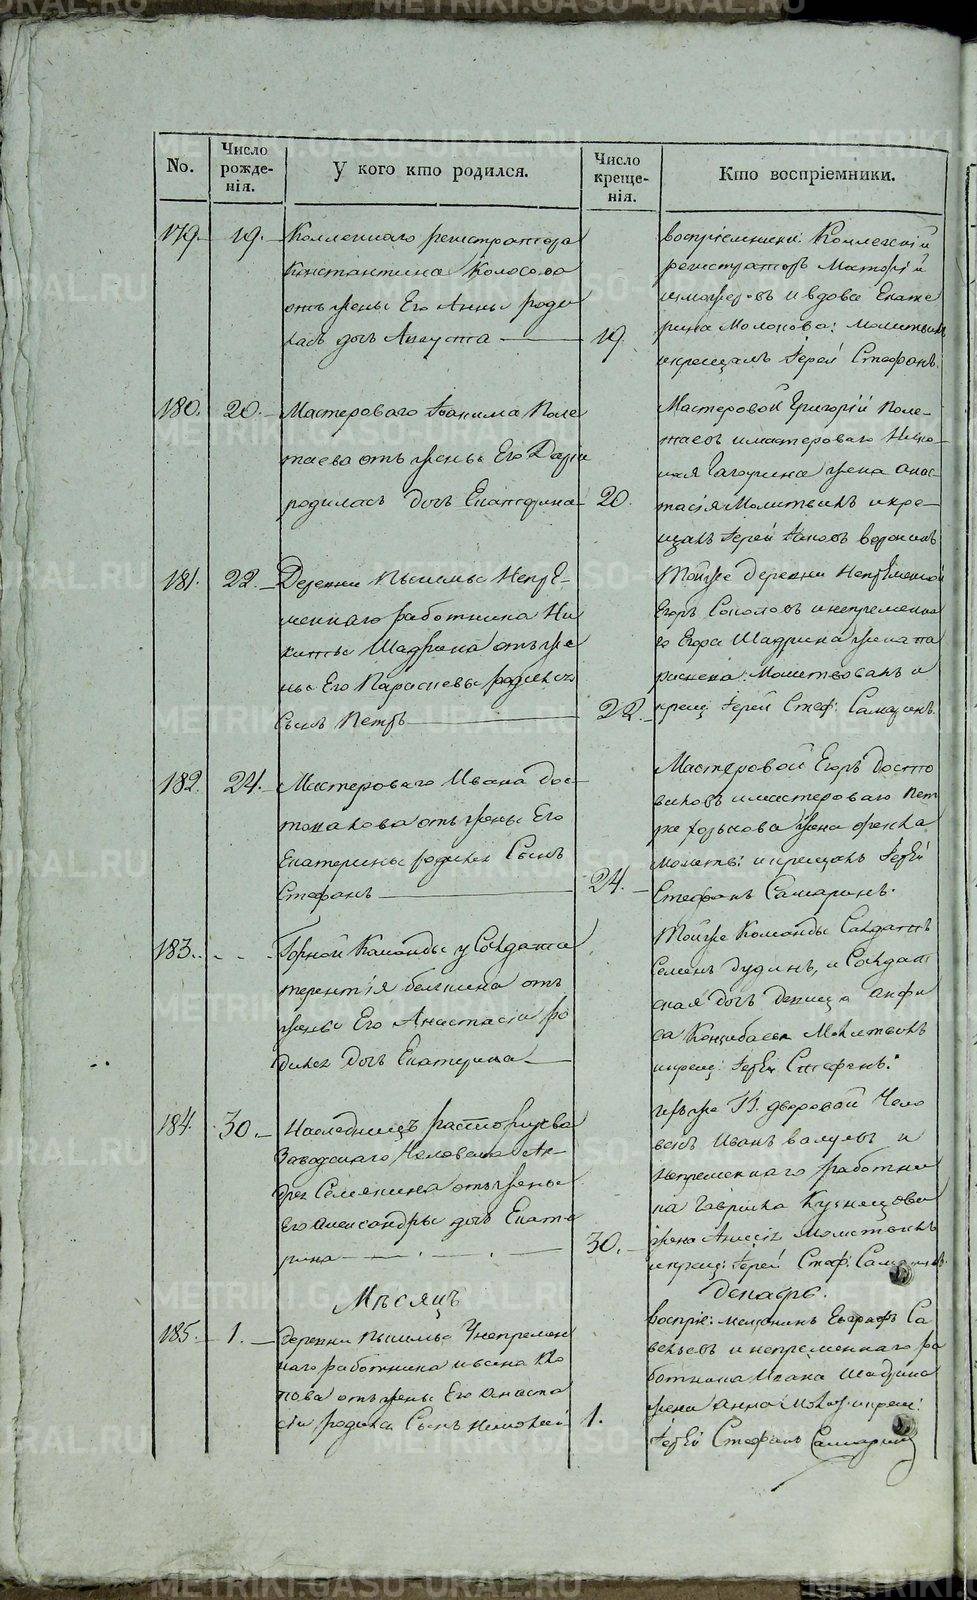 No.
Число рожде-нія.
У кого кто родился.
Число креще-нія.
Кто воспріемники.
179. 19.
Коллежскаго регистратора
Константина Колосова
отъ жены Его Анны роди
лась дочь Августа
19
воспріемники: Коллежскій
регистраторъ
и вдова Екате
рина Молокова: молитвилъ
и крещалъ Іерей Стефанъ
180. 20.
Мастероваго Іоакима Поле
таева отъ жены Его Дарьи
родилась дочь Екатерина
20
Мастеровой Григорій Поле-
таевъ и мастероваго Нико-
лая жена Анас-
тасія молитвилъ и кре-
щалъ Іерей Іаковъ
181. 22.
Деревни Пышмы Непрѣ-
меннаго работника Ни
киты Шадрина отъ же
ны Его Парасковьи родился
Сынъ Петръ
22.
Тойже деревни Непрѣменной
Егоръ Соколовъ и непременна
го Егора Шадрина жена па
раскева: Молитвовалъ и
крещ: Іерей Стеф: Самаринъ
182. 24.
Мастероваго Ивана Дос-
товалова отъ жены Его
Екатерины родился Сынъ
Стефанъ
24.
Мастеровой Егоръ Досто
валовъ и мастероваго Пет
ра жена
молитви: и крещалъ Іерей
Стефанъ Самаринъ.
183. - -
Горной Команды у Солдата
терентія белкина отъ
жены Его Анастасіи ро
дилась Дочь Екатерина
Тойже Команды Солдатъ
Семенъ Дудинъ, и Солдат
ская дочь девица анфи
са молитвилъ
и крещ: Іерей Стефанъ:
184. 30.
Наследницъ Расторгуева
Заводскаго Человека Ан-
дрея Семянина отъ жены
Его Александры дочь Екате
рина
30.
дворовой Чело
векъ Иванъ и
непременнаго работни
ка Гаврила Кузнецова
жена молитвилъ
и крещ: Іерей Стеф: Самаринъ
Мѣсяцъ Декабрь.
185. 1.
деревни Пышмы У непремен
наго работника ивана
отъ жены Его анаста
сіи родился Сынъ Николай
1.
воспріе: мещанинъ Евграфъ Са
вельевъ и непременнаго ра
ботника Ивана Шадрина
жена анна молит. и крещ:
Іерей Стефанъ Самаринъ
METRIKI.GASO-URAL.RU